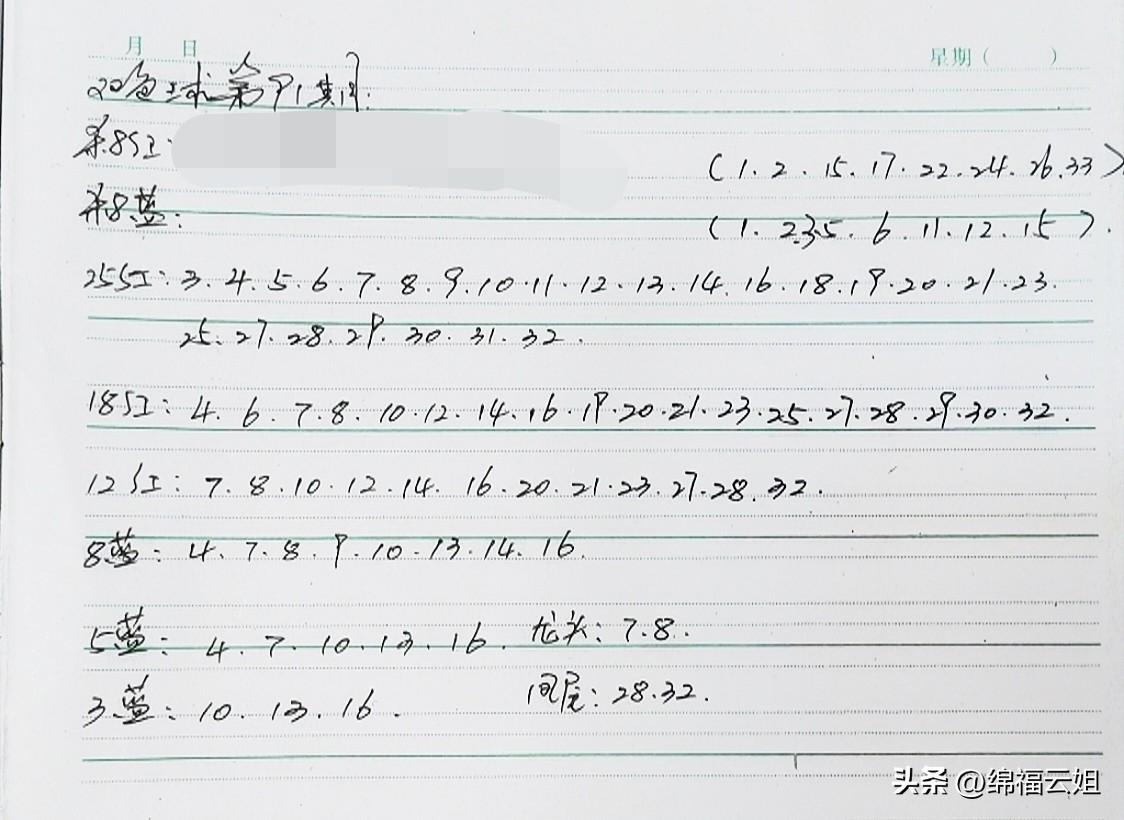 月 日
星期( )
双色球第91期:
杀8红: (1.2.15.17.22.24.26.33)
杀8蓝: (1.2.3.5.6.11.12.15).
25红:3.4.5.6.7.8.9.10.11.12.13.14.16.18.19.20.21.23.
25.27.28.29.30.31.32.
18红:4.6.7.8.10.12.14.16.19.20.21.23.25.27.28.29.30.32.
12红:7.8.10.12.14.16.20.21.23.27.28.32.
8蓝:4.7.8.9.10.13.14.16.
5蓝:4.7.10.13.16. 龙头:7.8.
3蓝:10.13.16. 凤尾:28.32.
头条 @绵福云姐